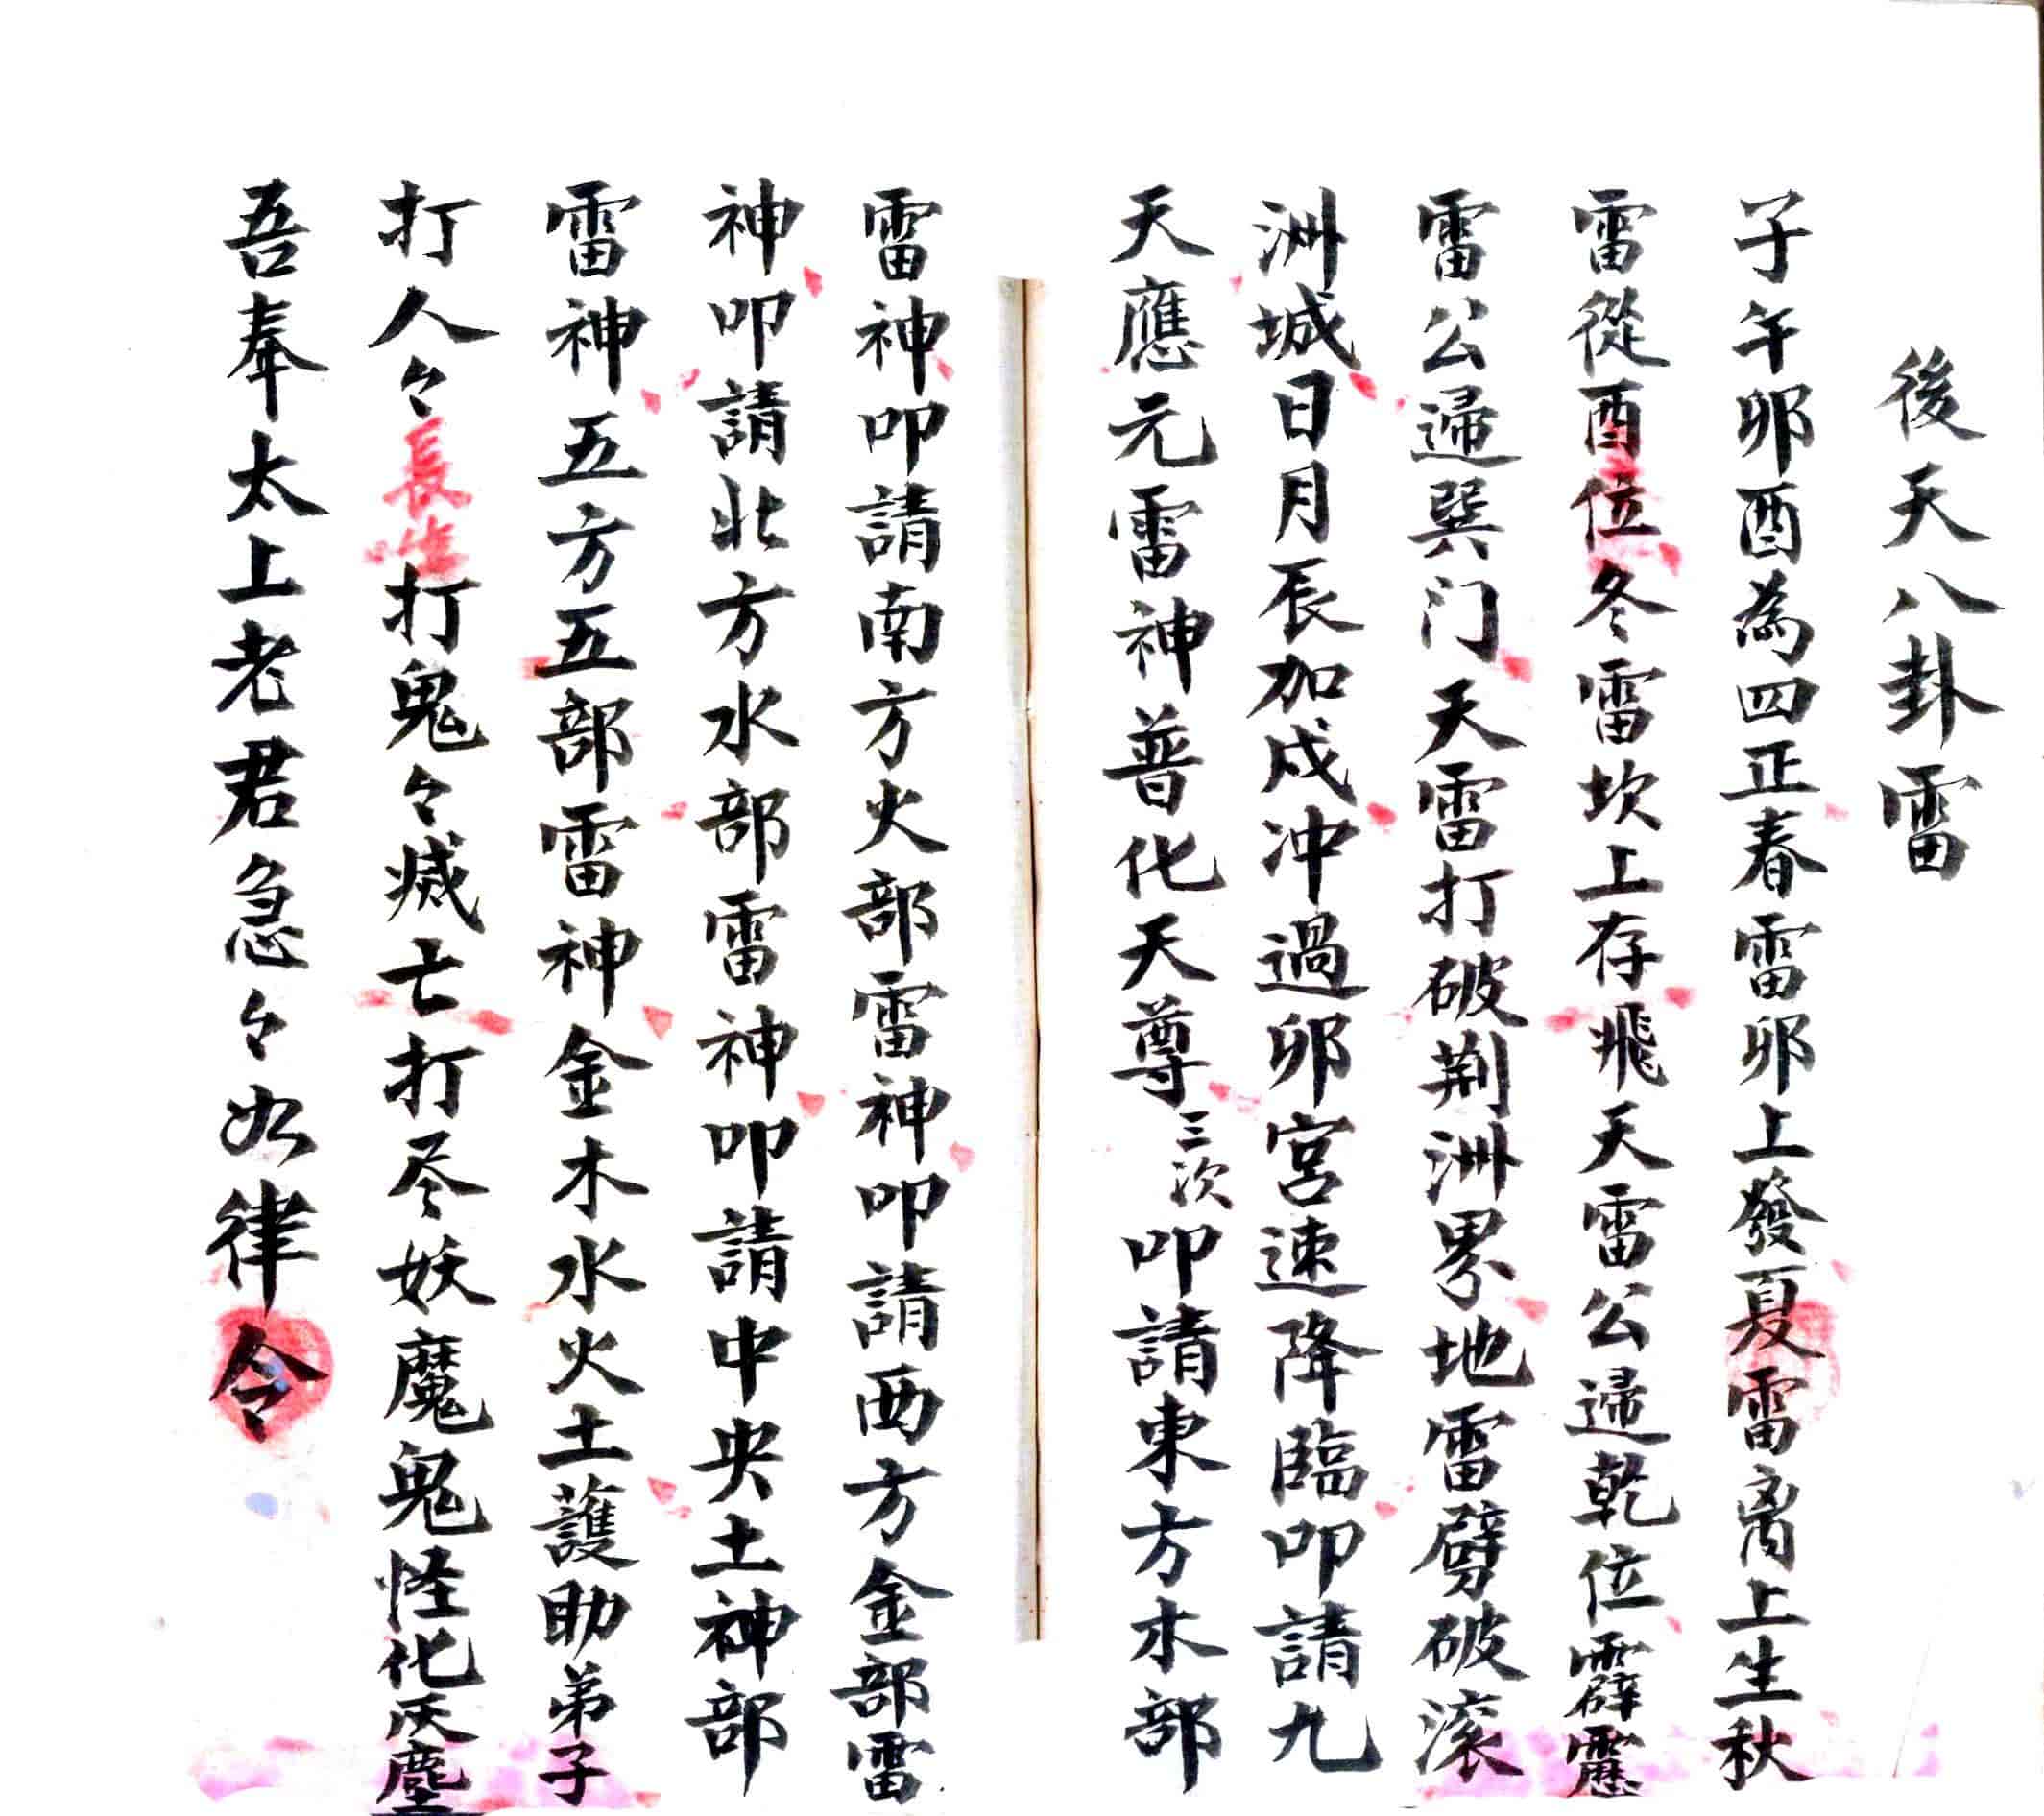 後天八卦雷
子午卯酉為四正春雷卯上發夏雷离上生秋
雷從酉位冬雷坎上存飛天雷公遆乾位霹靂
雷公遆巽门天雷打破荆洲界地雷劈破滚
洲城日月辰加戍冲過卯宮速降臨叩請九
天應元雷神普化天尊三次叩請東方木部
雷神叩請南方火部雷神叩請西方金部雷
神叩請北方水部雷神叩請中央土神部
雷神五方五部雷神金木水火土護助弟子
打人々長生打鬼々滅亡打尽妖魔鬼怪化灰塵
吾奉太上老君急々如律令